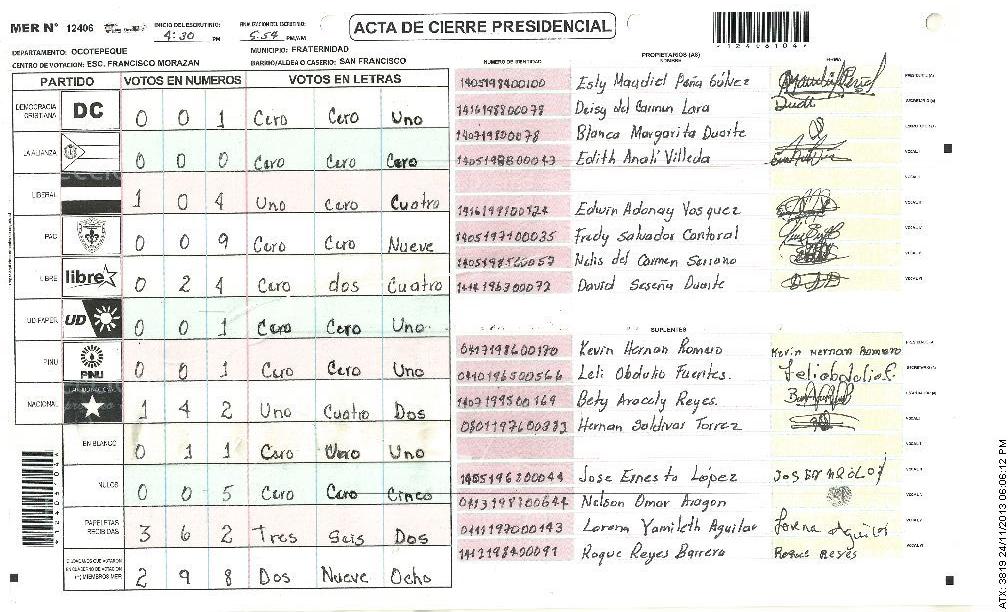 MER N° 12406 INICIO DEL ESCRUTINIO: 4:30 PM FINALIZACION DEL ESCRUTINIO: 5:54 PM/AM
ACTA DE CIERRE PRESIDENCIAL
*12406104*
DEPARTAMENTO: OCOTEPEQUE MUNICIPIO: FRATERNIDAD
CENTRO DE VOTACION: ESC. FRANCISCO MORAZAN BARRIO/ALDEA O CASERIO: SAN FRANCISCO
PARTIDO VOTOS EN NUMEROS VOTOS EN LETRAS
DEMOCRACIA CRISTIANA DC 0 0 1 Cero Cero Uno
LA ALIANZA 0 0 0 Cero Cero Cero
LIBERAL 1 0 4 Uno Cero Cuatro
PAC 0 0 9 Cero Cero Nueve
LIBRE libre 0 2 4 Cero dos Cuatro
UD/FAPER UD 0 0 1 Cero Cero Uno
PINU PINU 0 0 1 Cero Cero Uno
NACIONAL 1 4 2 Uno Cuatro Dos
EN BLANCO 0 1 1 Cero Uno
NULOS 0 0 5 Cero Cero Cinco
PAPELETAS RECIBIDAS 3 6 2 Tres Seis Dos
CIUDADANOS QUE VOTARON EN CUADERNO DE VOTACION (+) MIEMBROS MER 2 9 8 Dos Nueve Ocho
PROPIETARIOS (AS)
NUMERO DE IDENTIDAD NOMBRE FIRMA
1405198400100 Esly Maudiel Peña
Deisy del Carmen Lara
Blanca Margarita Duarte
1405198800043 Edith Analí Villeda
Edwin Adonay Vasquez
1405197100035 Fredy Salvador Contoral
Nelis del Carmen
David Duarte
SUPLENTES
0413198600170 Kevin Hernan Romero Kevin Hernan Romero
0410196500566 Leli Obdulio Fuentes.
1407199500169 Bety Aracely Reyes.
Hernan Saldivar Torrez
Jose Ernesto López
0413198100644 Nelson Omar Aragon
0411197000143 Lorena Yamileth Aguilar Lorena Aguilar
1412198400091 Roque Reyes Barrera Roque Reyes
ATX: 3819 24/11/2013 06:06:12 PM